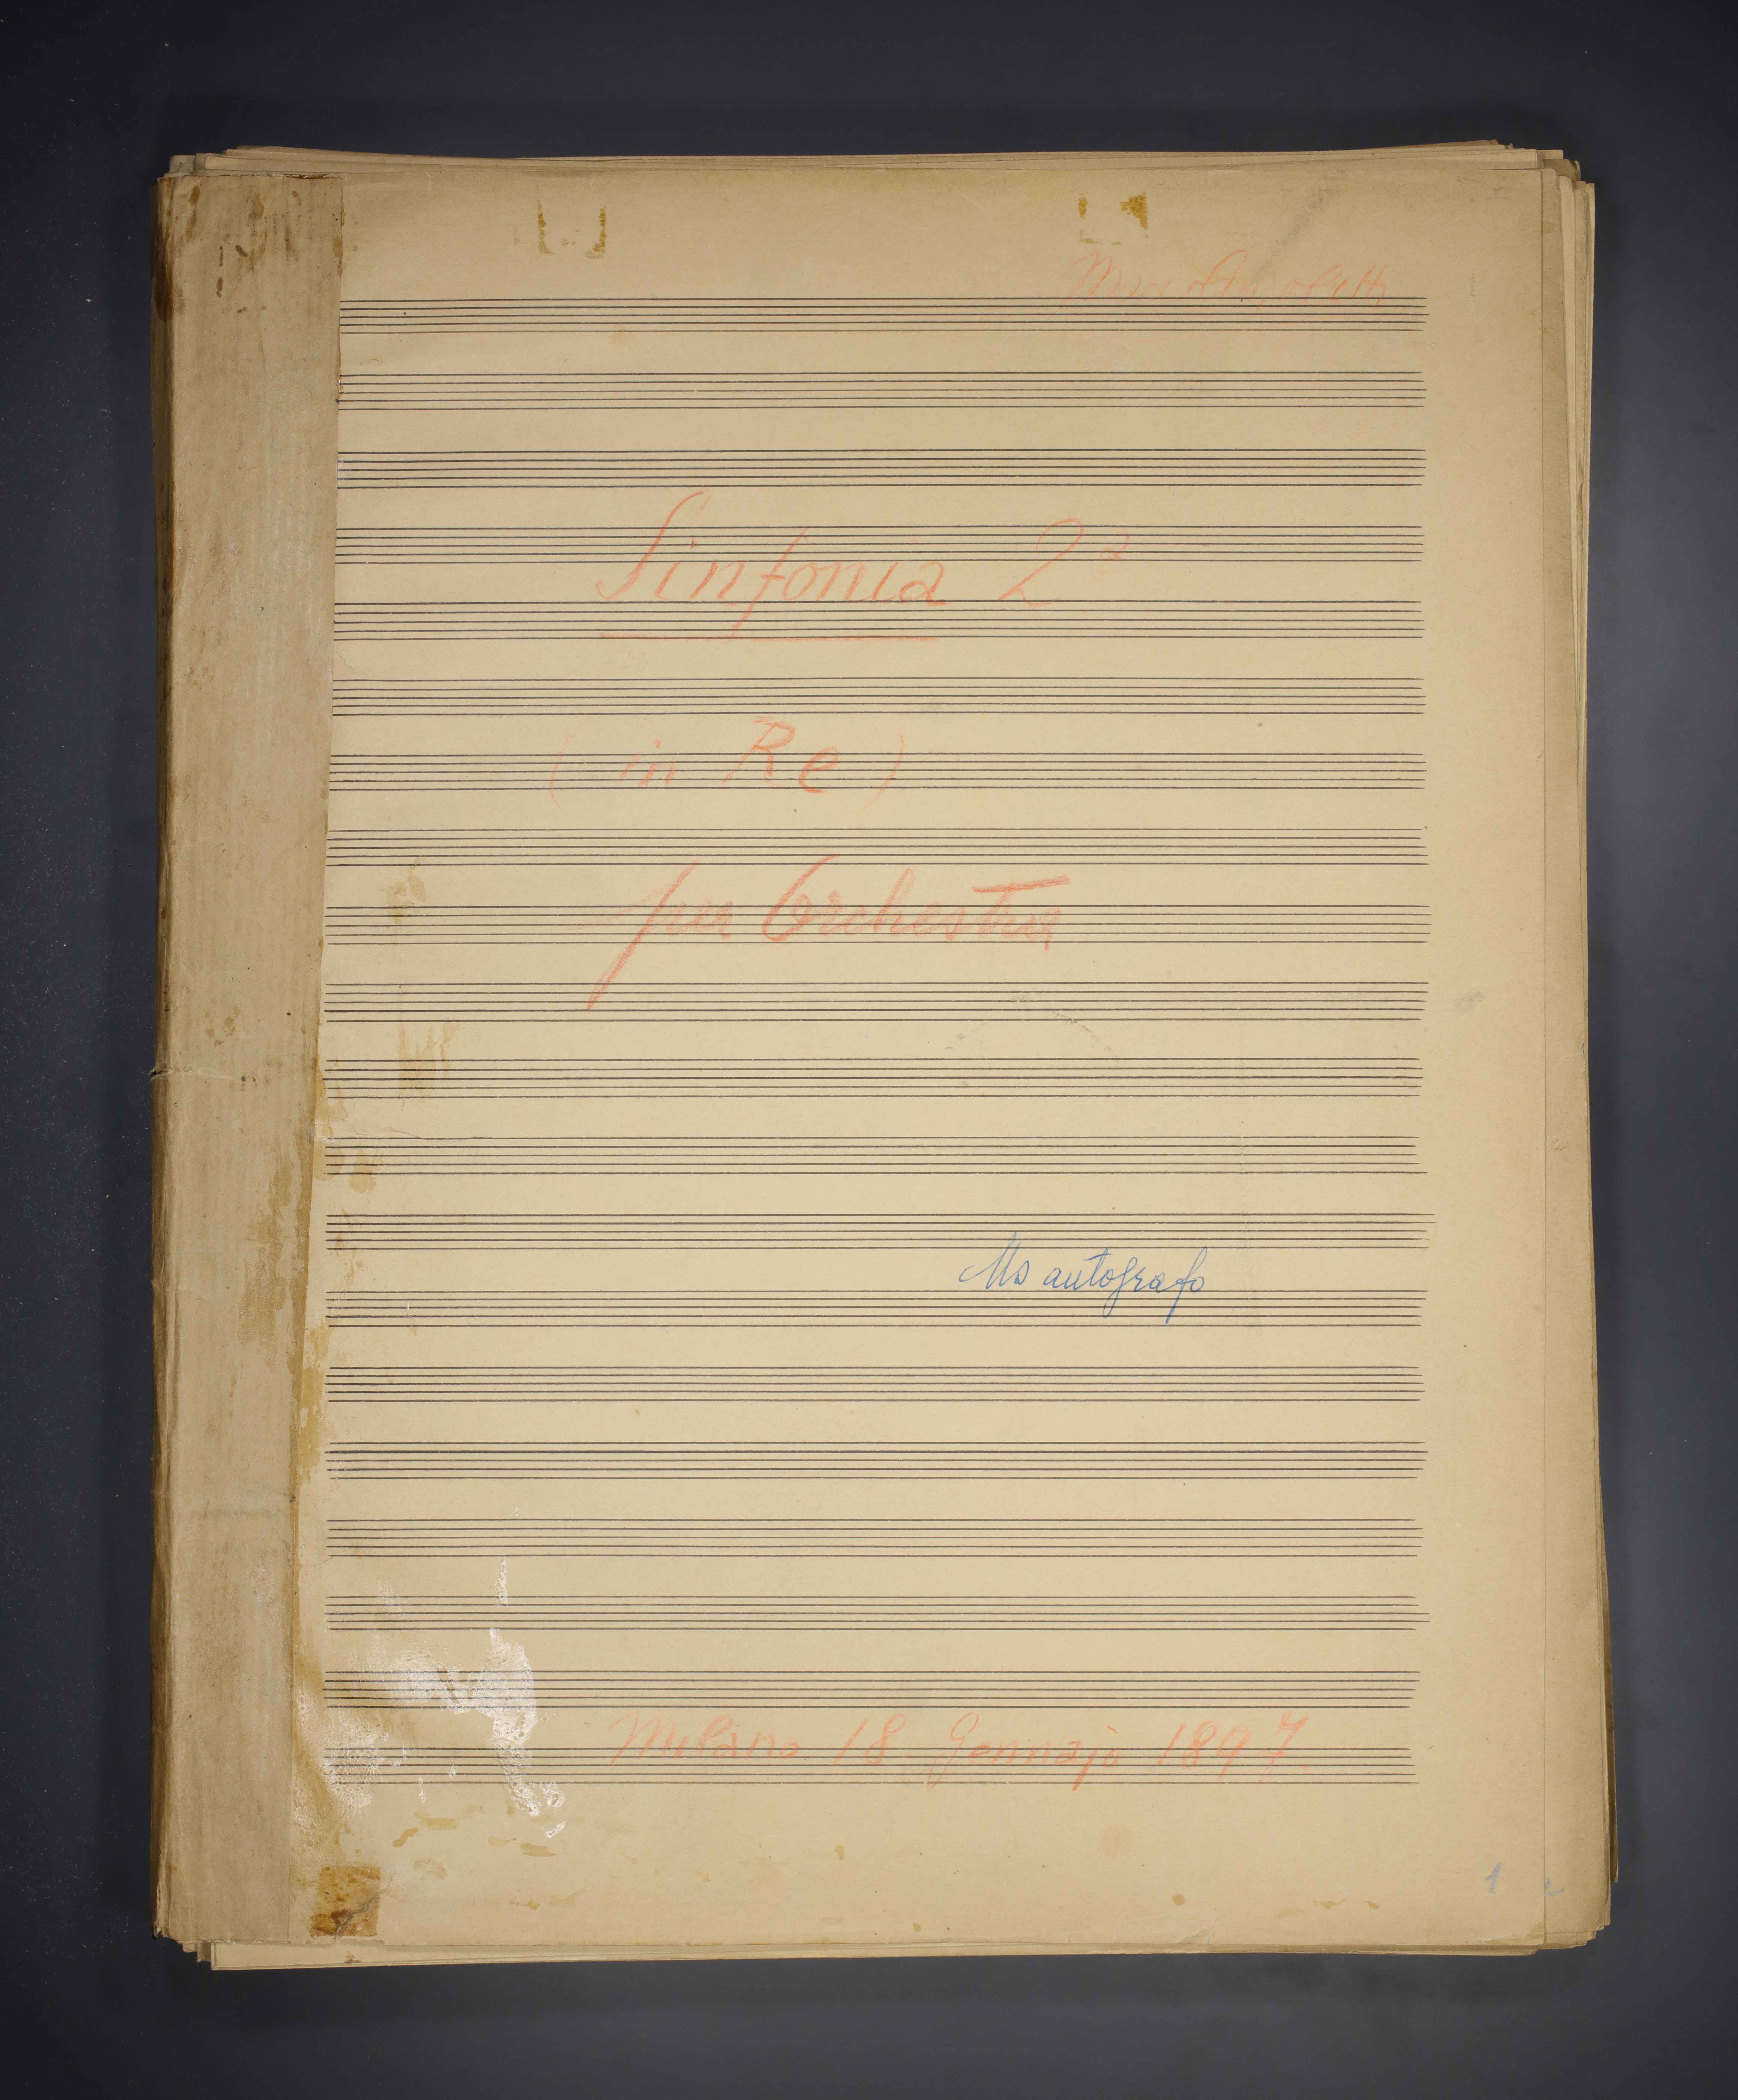 Sinfonia 2ª
(in Re)
per Orchestra
Ms autografo
Milano 18. Gennajo 1897.
1 2